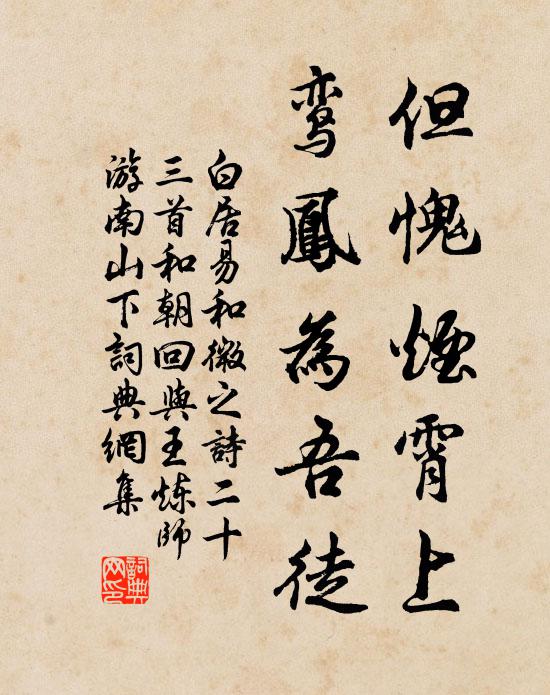 但愧煙霄上
鸾鳳為吾徒
白居易和微之詩二十
三首和朝回與王炼師
游南山下詞典網集
詞典网印